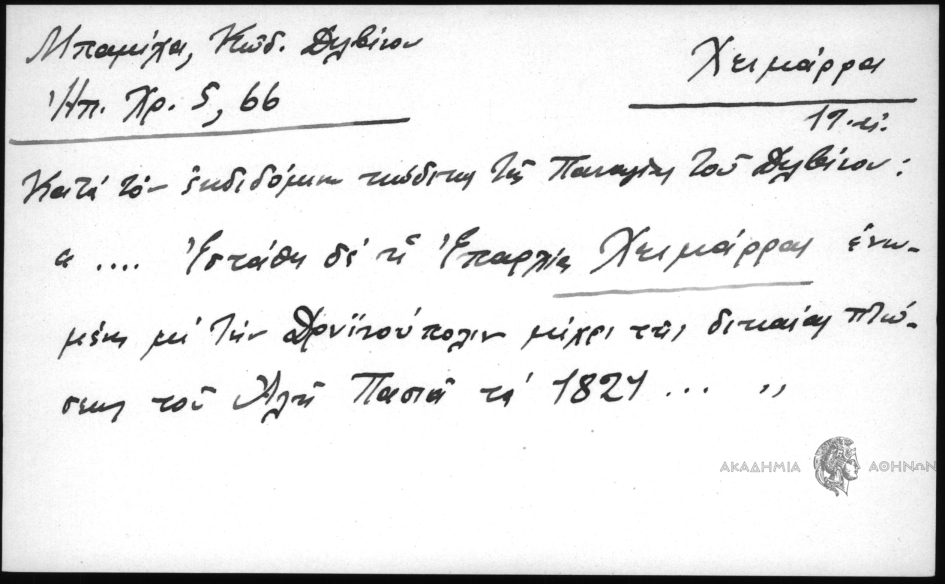 Μπαμίχα, Κώδ. Δελβίνου
Χειμάρρα
Ἠπ. Χρ. 5, 66
19. αἰ.
Κατὰ τὸν ἐκδιδόμενον κώδικα τῆς Παναγίας τοῦ Δελβίνου:
« .... Ἐστάθη δὲ ἡ Ἐπαρχία Χειμάρρας ἑνω-
μένη μὲ τὴν Δρυϊνούπολιν μέχρι τῆς δικαίας πτώ-
σεως τοῦ Ἀλῆ Πασιᾶ τὰ 1821 ... ,,
ΑΚΑΔΗΜΙΑ ΑΘΗΝΩΝ